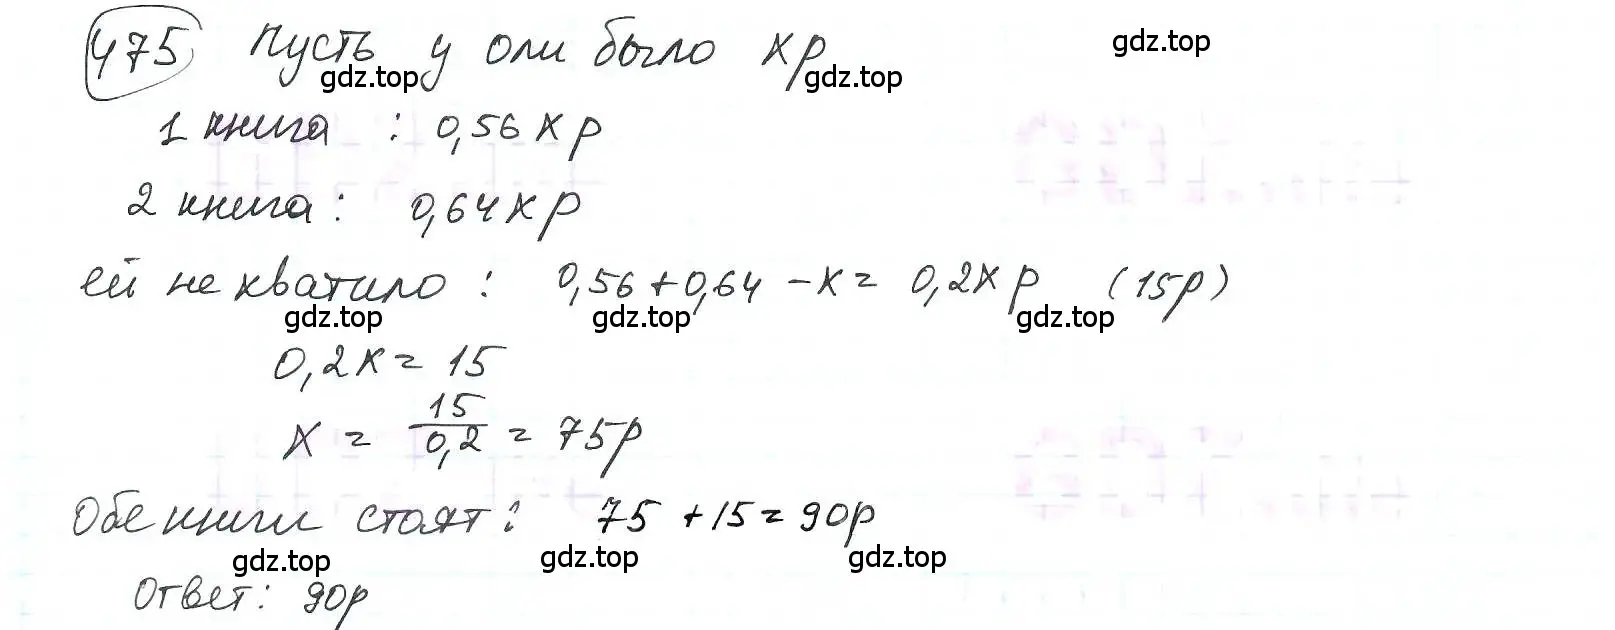 475 Пусть у Оли было xр
gdz.top gdz.top gdz.top
1 книга : 0,56xр
2 книга: 0,64xр
ей не хватило: 0,56+0,64-x= 0,2xр (15р)
gdz.top gdz.top gdz.top
0,2x=15
x = 15/0,2 = 75р
Обе книги стоят: 75+15=90р
gdz.top gdz.top gdz.top
Ответ: 90р